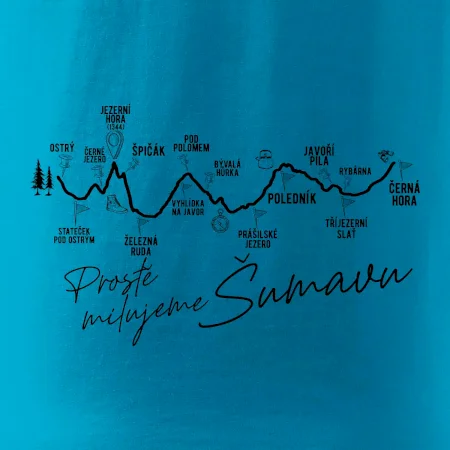 JEZERNÍ
HORA
(1344)
OSTRÝ
ČERNÉ
JEZERO
ŠPIČÁK
POD
POLOMEM
BÝVALÁ
HŮRKA
JAVOŘÍ
PILA
RYBÁRNA
ČERNÁ
HORA
VYHLÍDKA
NA JAVOR
POLEDNÍK
STATEČEK
POD OSTRÝM
ŽELEZNÁ
RUDA
PRÁŠILSKÉ
JEZERO
TŘÍJEZERNÍ
SLAŤ
Prostě
milujeme Šumavu